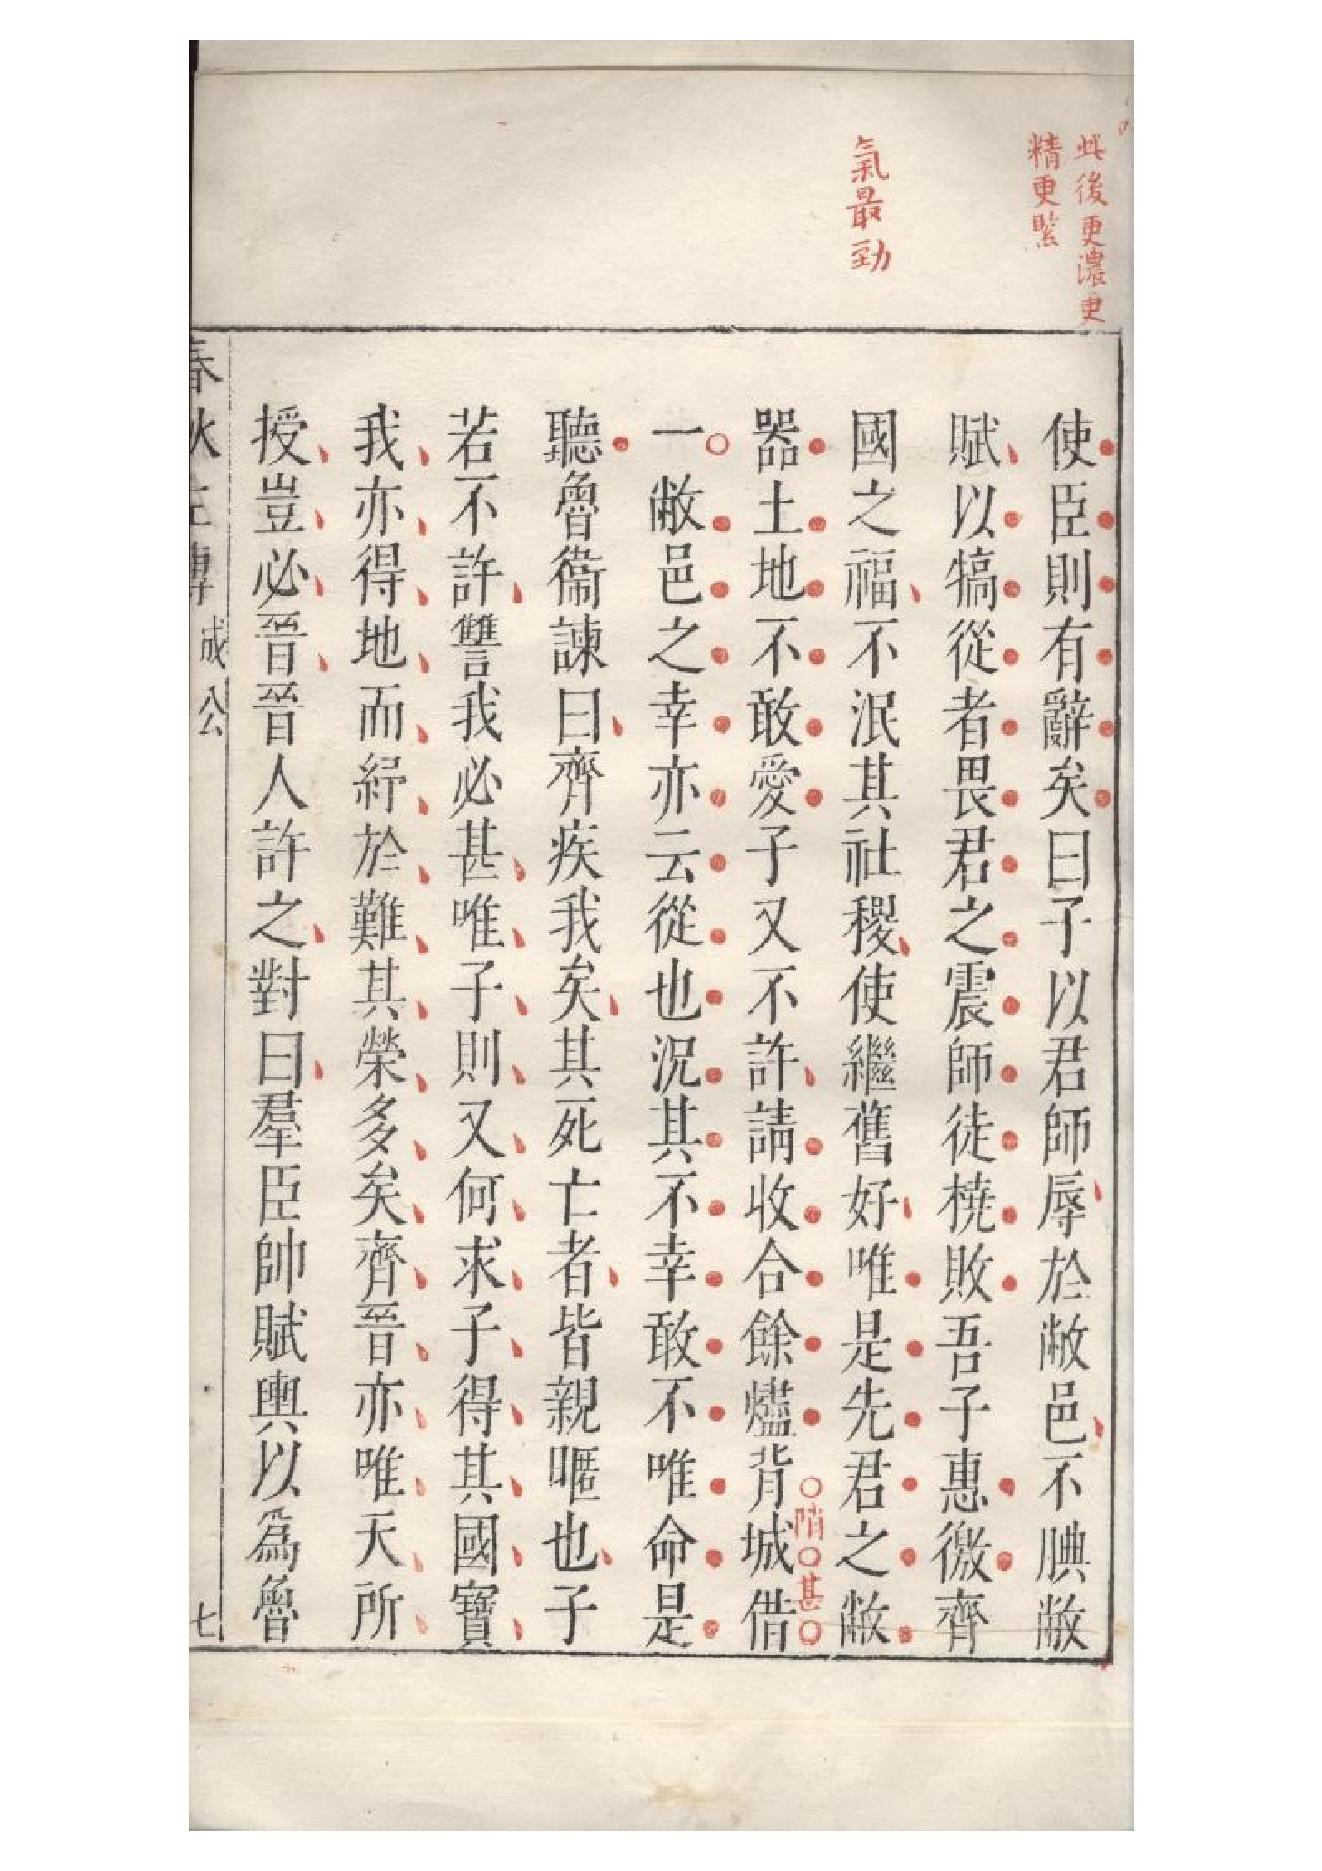 此後更濃更
精更緊
氣最勁
使臣則有辭矣曰子以君師辱於敝邑不腆敝
賦以犒從者畏君之震師徒橈敗吾子惠徼齊
國之福不泯其社稷使繼舊好唯是先君之敝
器土地不敢愛子又不許請收合餘燼背城借
峭甚
一敝邑之幸亦云從也況其不幸敢不唯命是
聽魯衞諫曰齊疾我矣其死亡者皆親暱也子
若不許讐我必甚唯子則又何求子得其國寶
我亦得地而紓於難其榮多矣齊晉亦唯天所
授豈必晉晉人許之對曰羣臣帥賦輿以爲魯
春秋左傳 成公 七